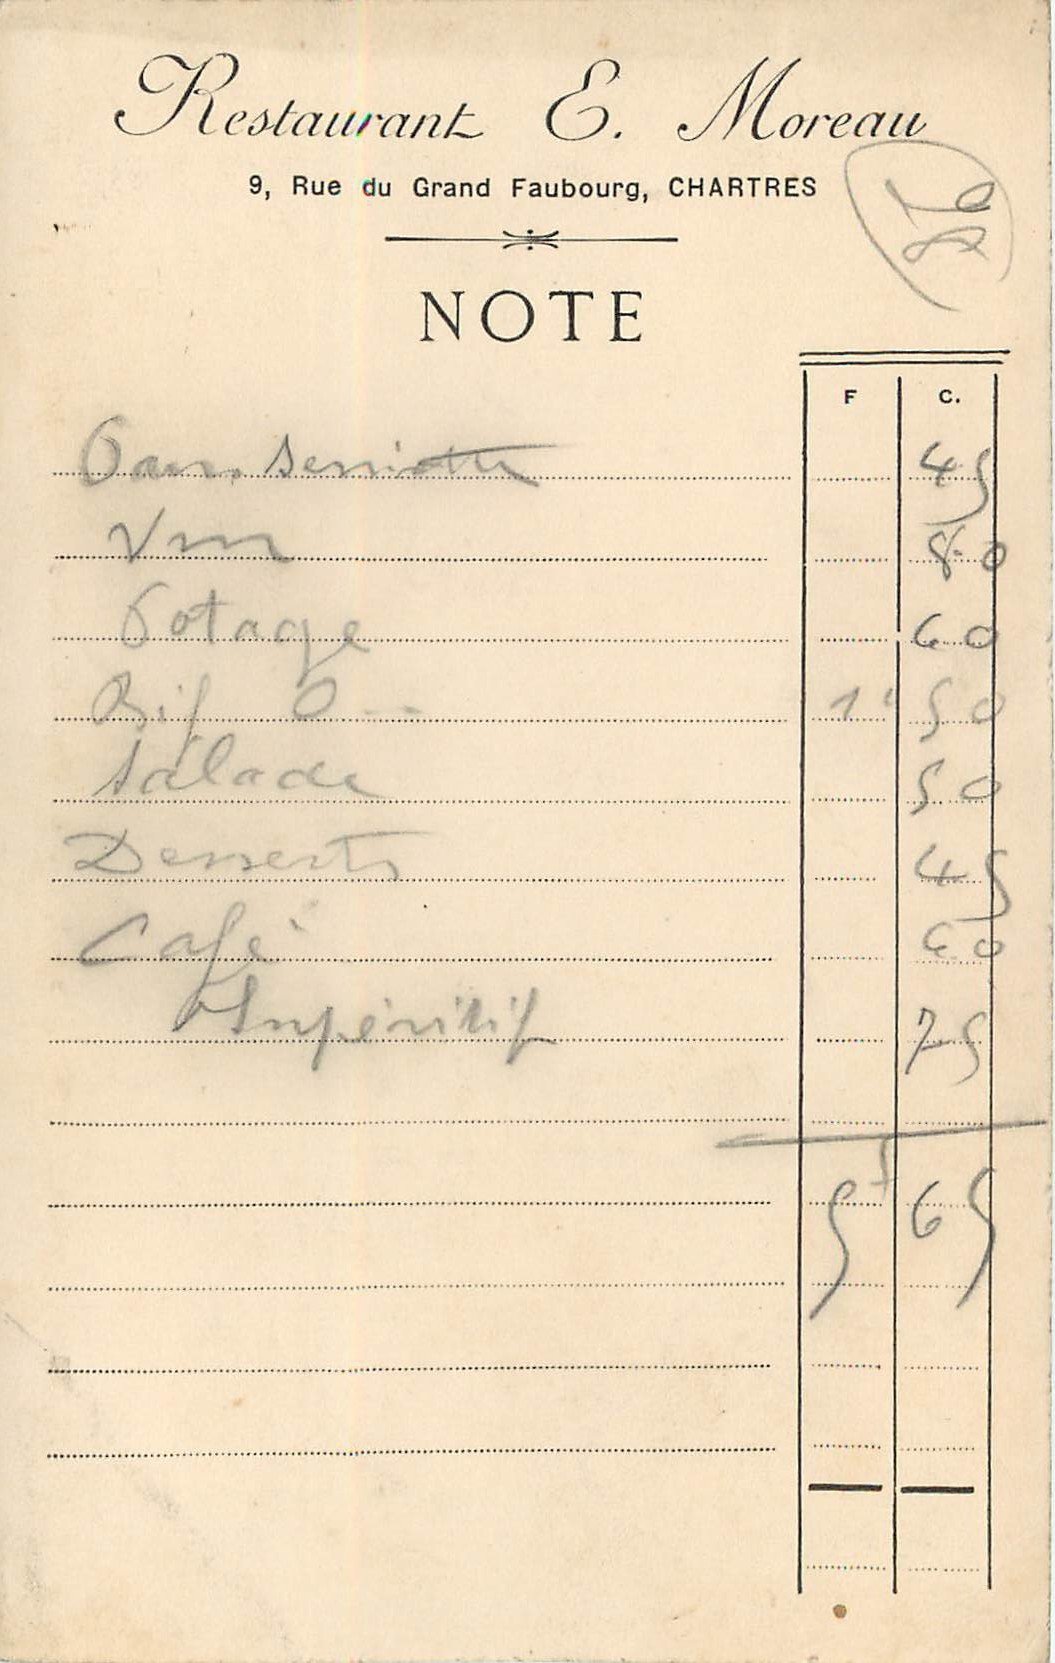 Restaurant E. Moreau
9, Rue du Grand Faubourg, CHARTRES
NOTE
F C.
Pain, Serviette 45
Vin 80
Potage 60
Bif 1f 50
Salade 50
Desserts 45
Café 60
Apéritif 75
5f 65